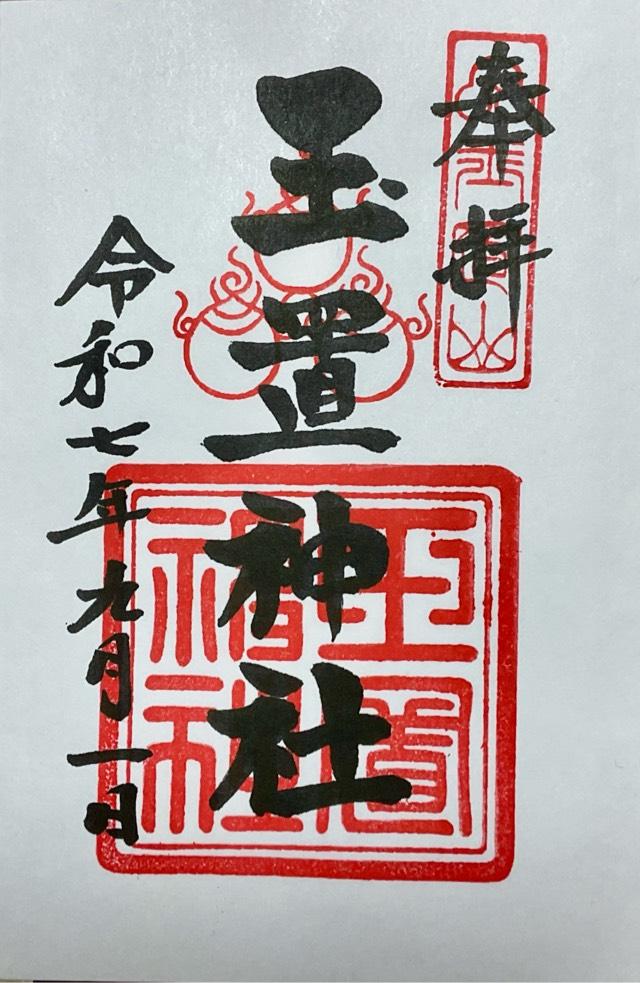 奉拝
玉置神社
令和七年九月一日
玉置神社